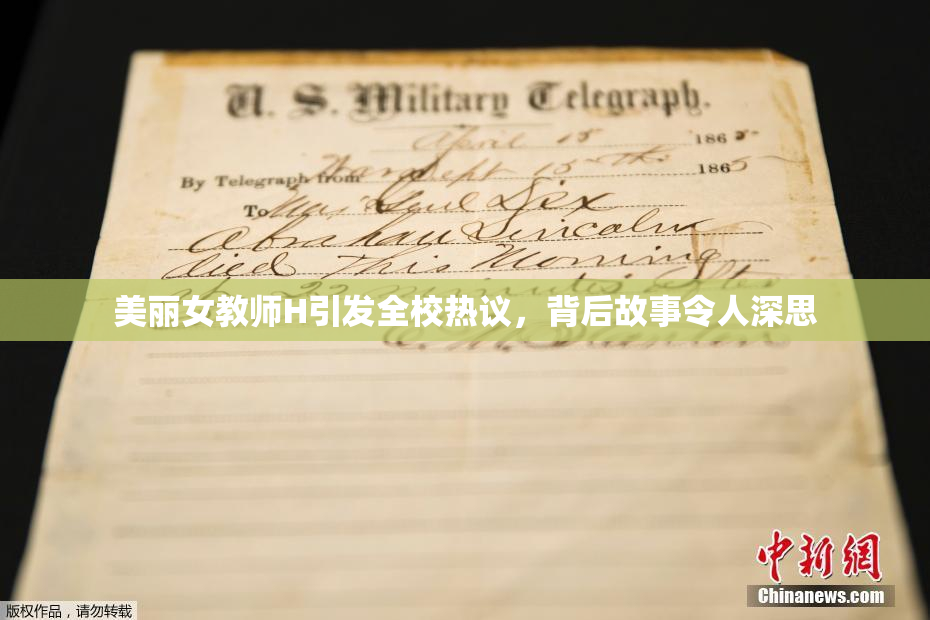 U. S. Military Telegraph.
April 15 1865
By Telegraph from War Dept 15th 1865
To Maj Genl Dix
Abraham Lincoln
died This Morning
at 22 minutes after
美丽女教师H引发全校热议，背后故事令人深思
中新网
Chinanews.com
版权作品，请勿转载